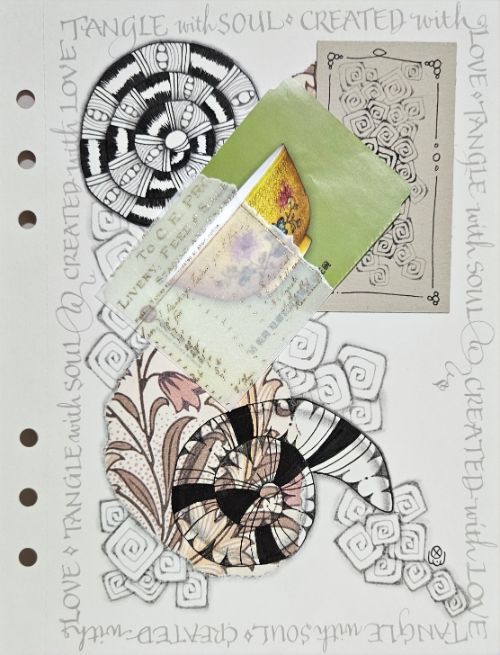 TANGLE with SOUL ⬥ CREATED with
LOVE ⬥ TANGLE with SOUL CREATED with LOVE
TANGLE with SOUL ⬥ CREATED with
LOVE ⬥ TANGLE with SOUL CREATED with LOVE
TO C.E. PR
LIVERY, FEEL & S